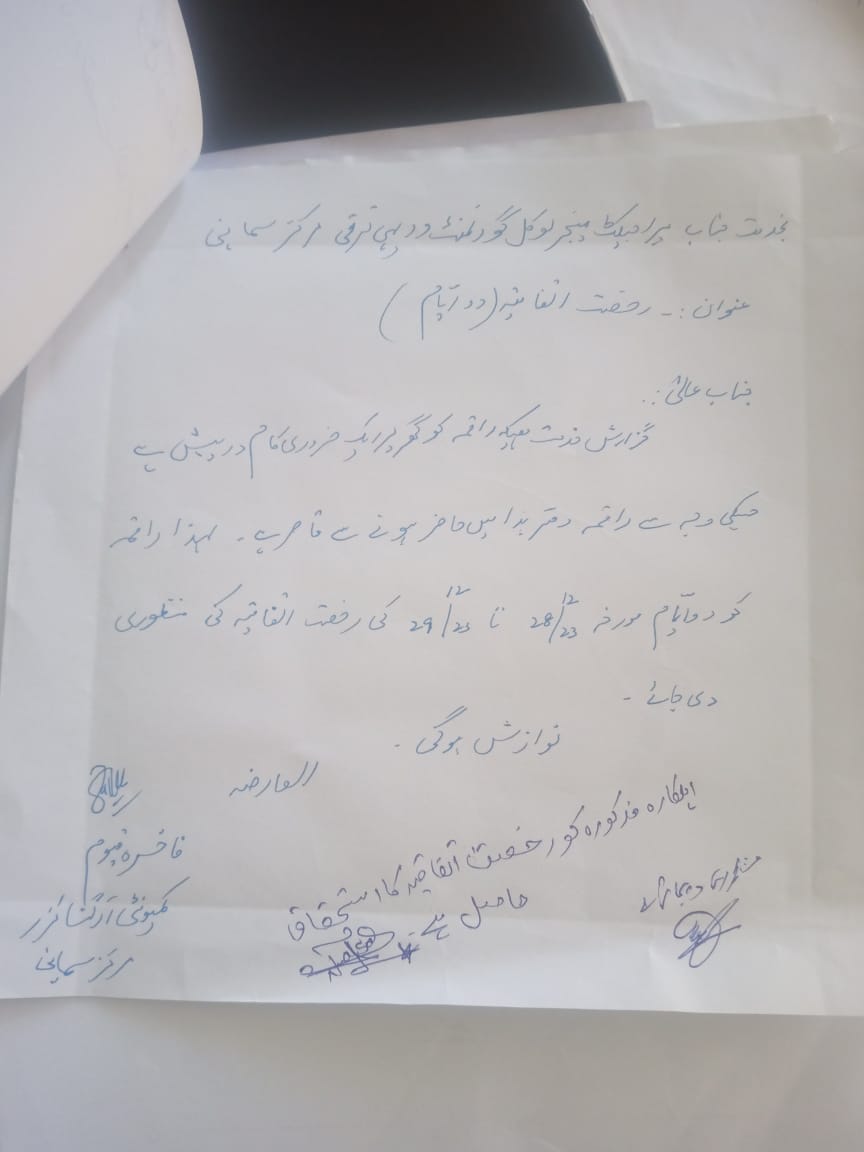 بخدمت جناب پراجیکٹ مینجر لوکل گورنمنٹ و دیہی ترقی مرکز سماہنی
عنوان :۔ رخصت اتفاقیہ (دو ایام)
جناب عالی :۔
گزارش خدمت ہیکہ راقمہ کو گھر پر ایک ضروری کام درپیش ہے
جسکی وجہ سے راقمہ دفتر ہذا میں حاضر ہونے سے قاصر ہے۔ لہذا راقمہ
کو دو ایام مورخہ 28/12/23 تا 29/12/23 کی رخصت اتفاقیہ کی منظوری
دی جائے ۔
نوازش ہوگی ۔
العارضہ
فاخرہ قیوم
کمیونٹی آرگنائزر
مرکز سماہنی
اہلکارہ مذکورہ کو رخصت اتفاقیہ کا استحقاق
حاصل ہے۔